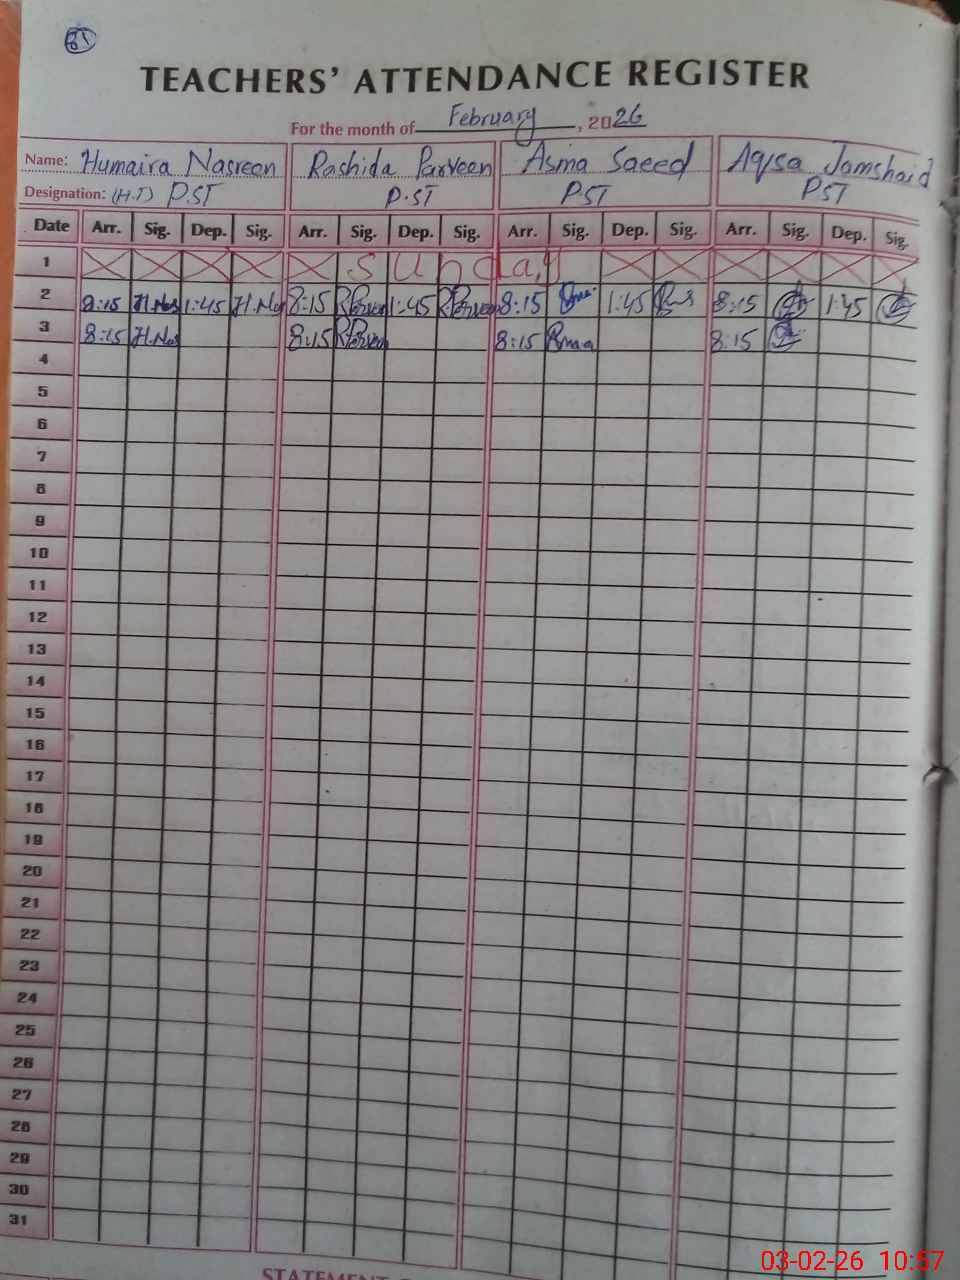 81
TEACHERS' ATTENDANCE REGISTER
For the month of February, 2026
Name: Humaira Nasreen Rashida Parveen Asma Saeed Aqsa Jamshaid
Designation: (H.T) P.ST P.ST P.ST P.ST
Date Arr. Sig. Dep. Sig. Arr. Sig. Dep. Sig. Arr. Sig. Dep. Sig. Arr. Sig. Dep. Sig.
1 Sunday
2 8:15 H.Nas 1:45 H.Nas 8:15 RParveen 1:45 RParveen 8:15 1:45 8:15 1:45
3 8:15 H.Nas 8:15 RParveen 8:15 8:15
4
5
6
7
8
9
10
11
12
13
14
15
16
17
18
19
20
21
22
23
24
25
26
27
28
29
30
31
STATEMENT
03-02-26 10:57